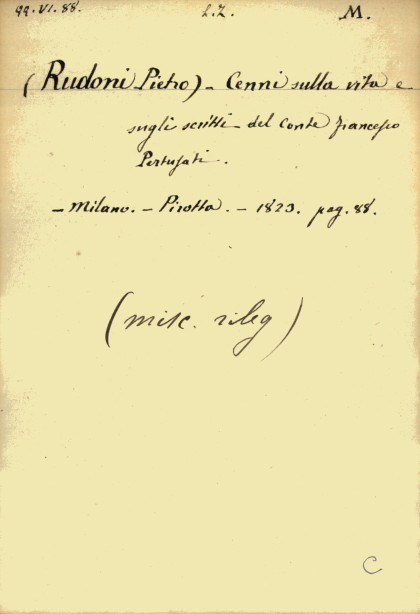 99.VI.88. L.Z. M.
(Rudoni Pietro) - Cenni sulla vita e
sugli scritti - del Conte Francesco
Pertusati.
- Milano. - Pirotta. - 1823. pag. 88.
(misc. rileg)
C